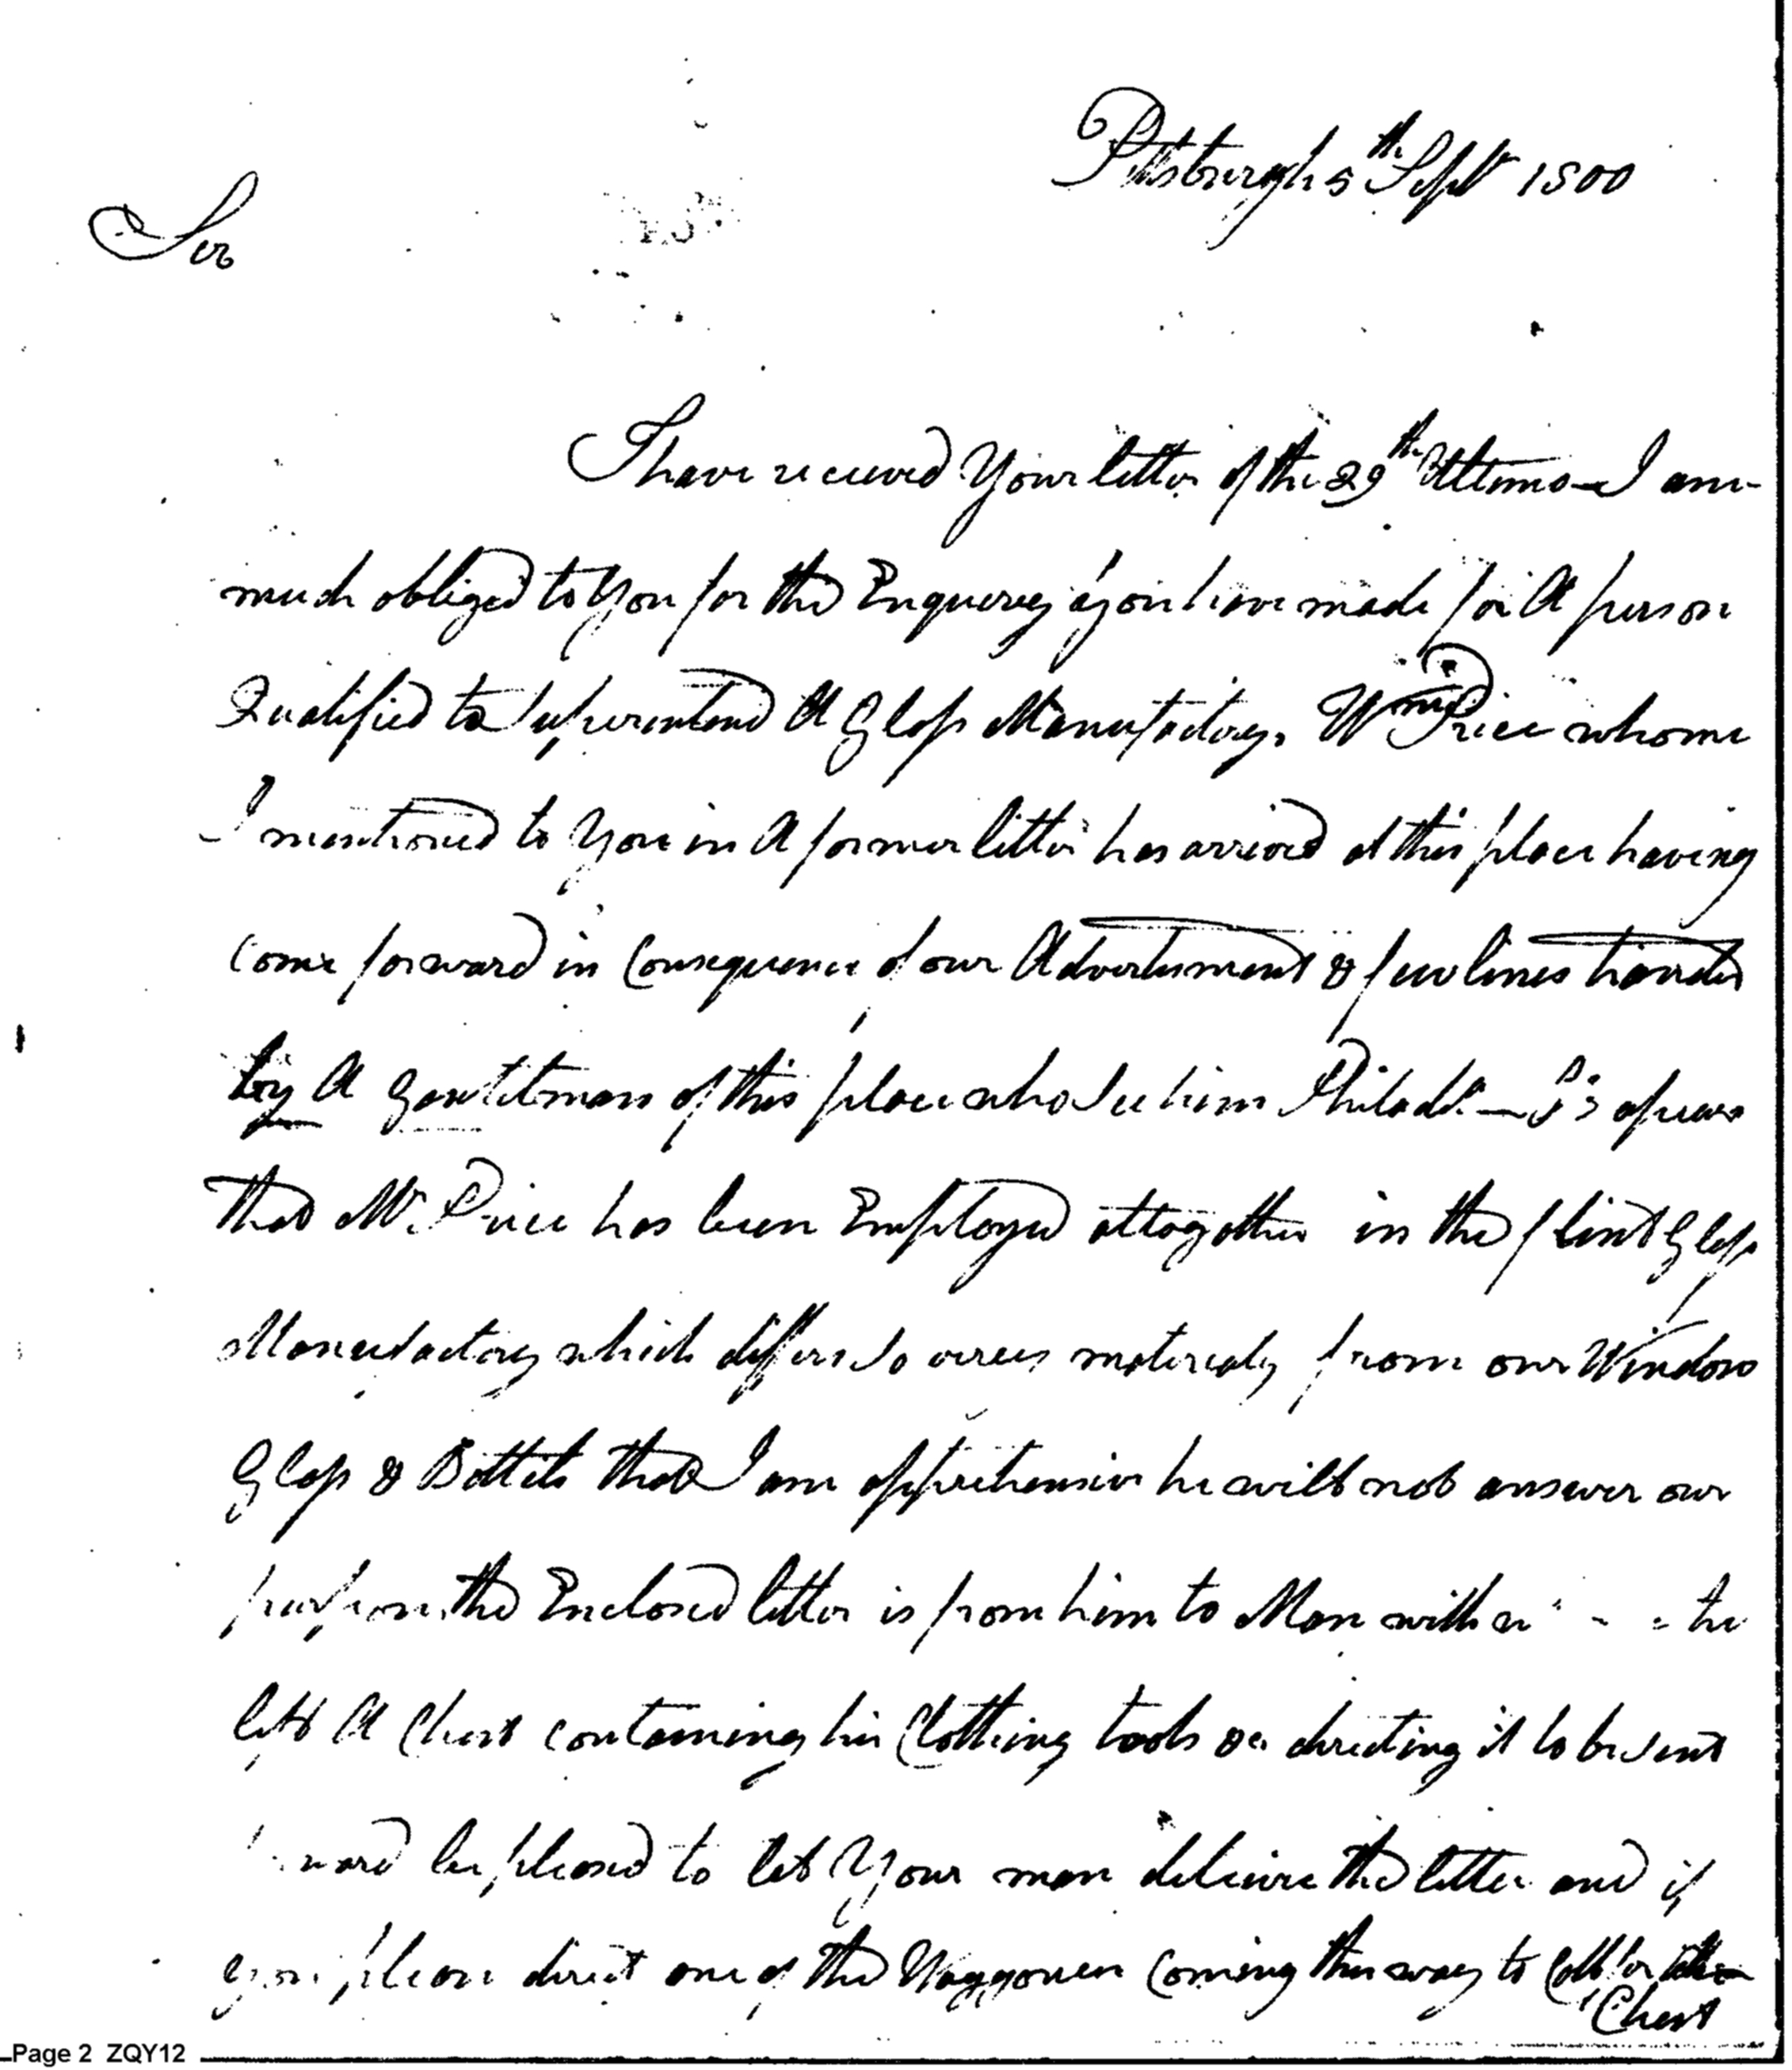 Pittsburgh 5th Sept 1800
Sir
I have received Your letter of the 29th Ultimo — I am
much obliged to You for the Enquirey you have made for A person
Qualified to superintend A Glass Manufactory, Wm Price whome
I mentioned to You in A former letter has arrived at this place having
Come forward in Consequence of our Advertisment & few lines handed
by A Gentleman of this place who see him Philadla —
that Mr. Price has been Employed altogether in the flint Glass
Manufactory which differs so verey materialy from our Window
Glass & Bottels that I am apprehensive he will not answer our
purpose, the Enclosed letter is from him to Man with he
left A Chest containing his Clothing tools &c directing it to be sent
be pleased to let Your man delivire the letter and if
you please direct one of the Waggoners Coming this way to Call for the
Chest
Page 2 ZQY12